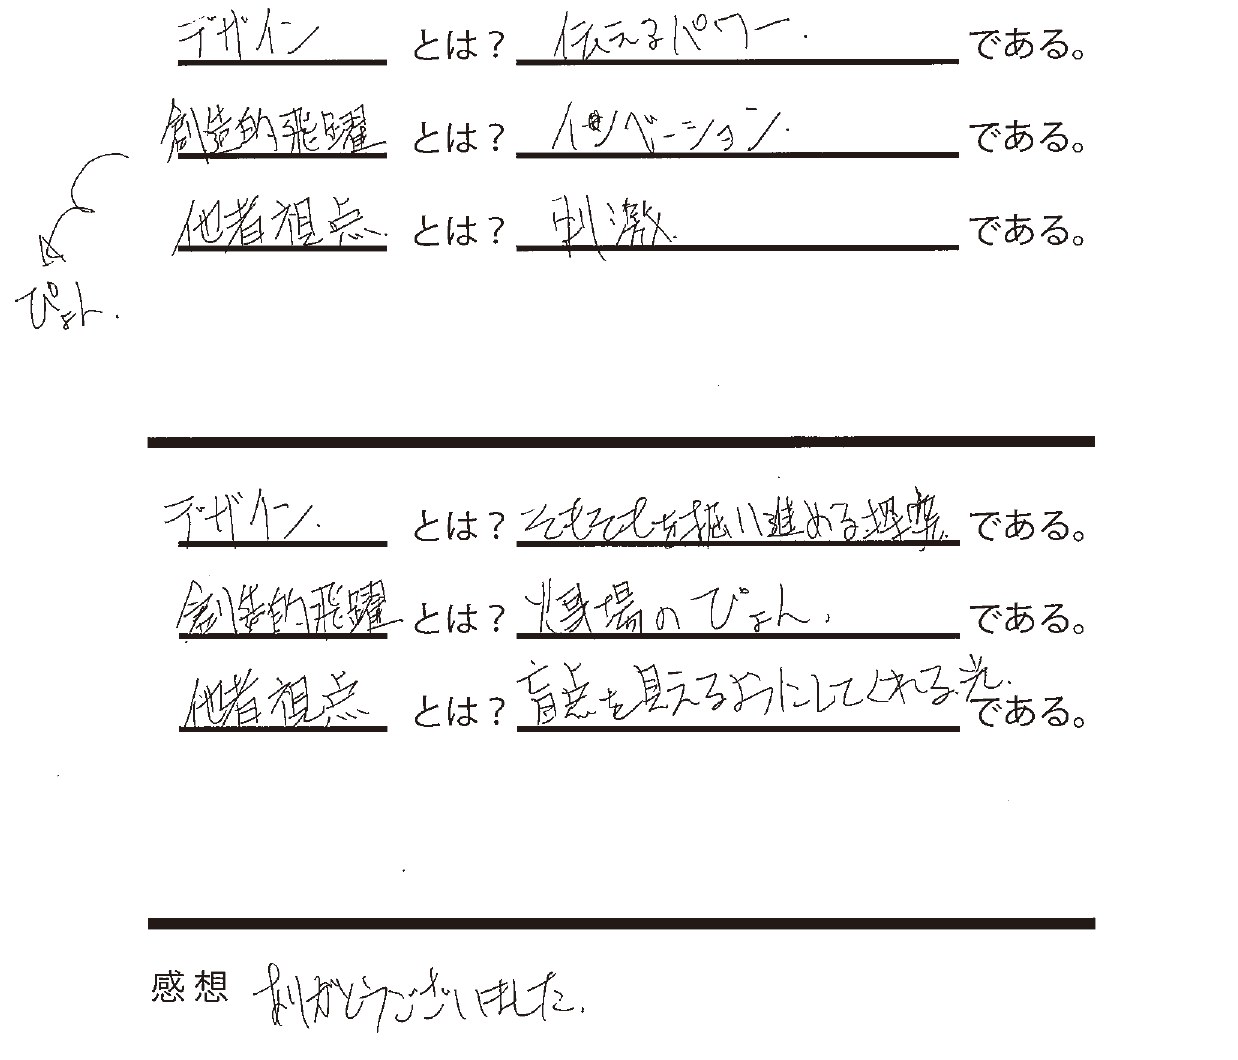 デザイン とは？ 伝えるパワー. である。
創造的飛躍 とは？ イノベーション. である。
他者視点. とは？ 刺激. である。
ぴょん.
デザイン. とは？ そもそもを掘り進める である。
創造的飛躍 とは？ 現場のぴょん. である。
他者視点 とは？ 盲点を見えるようにしてくれる光. である。
感想 ありがとうございました.